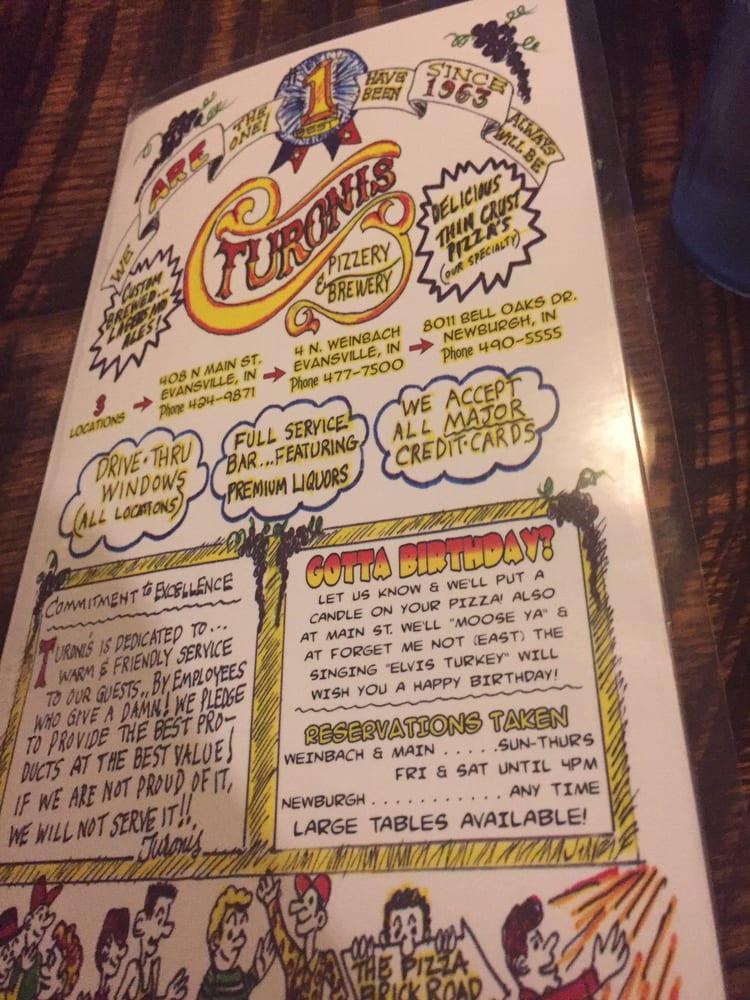 WE ARE THE ONE! #1 BEST HAVE BEEN SINCE 1963 ALWAYS WILL BE
TURONIS
PIZZERY
& BREWERY
CUSTOM
BREWED...
LAGERS AND
ALES!
DELICIOUS
THIN CRUST
PIZZA'S
(OUR SPECIALTY)
3
LOCATIONS
408 N MAIN ST.
EVANSVILLE, IN
Phone 424-9871
4 N. WEINBACH
EVANSVILLE, IN
Phone 477-7500
8011 BELL OAKS DR.
NEWBURGH, IN
Phone 490-5555
DRIVE-THRU
WINDOWS
(ALL LOCATIONS)
FULL SERVICE
BAR...FEATURING
PREMIUM LIQUORS
WE ACCEPT
ALL MAJOR
CREDIT-CARDS
COMMITMENT to EXCELLENCE
TURONI'S IS DEDICATED TO...
WARM & FRIENDLY SERVICE
TO OUR GUESTS.. BY EMPLOYEES
WHO GIVE A DAMN! WE PLEDGE
TO PROVIDE THE BEST PRO-
DUCTS AT THE BEST VALUE!
IF WE ARE NOT PROUD OF IT,
WE WILL NOT SERVE IT!!
Turonis
GOTTA BIRTHDAY?
LET US KNOW & WE'LL PUT A
CANDLE ON YOUR PIZZA! ALSO
AT MAIN ST. WE'LL "MOOSE YA" &
AT FORGET ME NOT (EAST) THE
SINGING "ELVIS TURKEY" WILL
WISH YOU A HAPPY BIRTHDAY!
RESERVATIONS TAKEN
WEINBACH & MAIN . . . . .SUN-THURS
FRI & SAT UNTIL 4PM
NEWBURGH . . . . . . . . . . . ANY TIME
LARGE TABLES AVAILABLE!
THE PIZZA
BRICK ROAD